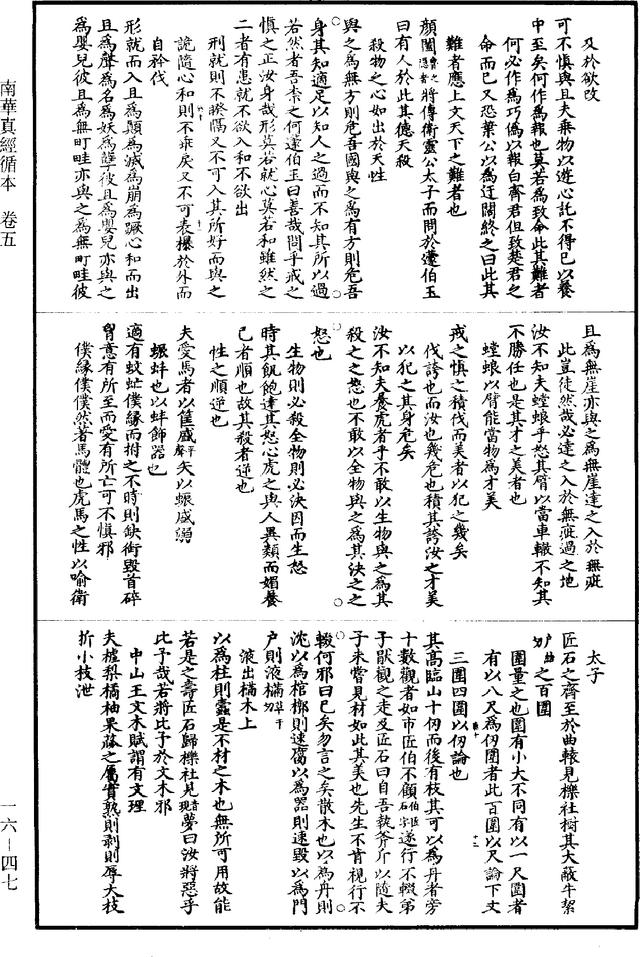 及於欲改
可不慎與且夫乘物以遊心託不得已以養
中至矣何作為報也莫若為致命此其難者
何必作為巧僞以報白齊君但致楚君之
命而已又恐葉公以為迂闊終之曰此其
難者應上文天下之難者也
顏闔將傅衛靈公太子而問於蘧伯玉
曰有人於此其德天殺
殺物之心如出於天性
與之為無方則危吾國與之為有方則危吾
身其知適足以知人之過而不知其所以過
若然者吾柰之何蘧伯玉曰善哉問乎戒之
慎之正汝身哉形莫若就心莫若和雖然之
二者有患就不欲入和不欲出
刑就則不睽隔又不可入其所好而與之
詭隨心和則不乖戾又不可表襮於外而
自矜伐
形就而入且為顛為滅為崩為蹶心和而出
且為聲為名為妖為孽彼且為嬰兒亦與之
為嬰兒彼且為無町畦亦與之為無町畦彼
且為無崖亦與之為無崖達之入於無疵
此豈徒然哉必達之入於無疵過之地
汝不知夫螳蜋乎怒其臂以當車轍不知其
不勝任也是其才之美者也
螳蜋以臂能當物為才美
戒之慎之積伐而美者以犯之幾矣
伐誇也而汝也幾危也積其誇汝之才美
以犯之其身危矣
汝不知夫養虎者乎不敢以生物與之為其
殺之之怒也不敢以全物與之為其決之之
怒也
生物則必殺全物則必決因而生怒
時其飢飽達其怒心虎之與人異類而媚養
己者順也故其殺者逆也
性之順逆也
夫愛馬者以筐盛平聲矢以蜄盛溺
蜄蚌也以蚌飾器也
適有蚊虻僕緣而拊之不時則缺銜毀首碎
胷意有所至而愛有所亡可不慎邪
僕緣僕僕然著馬體也虎馬之性以喻衛
太子
匠石之齊至於曲轅見櫟社樹其大蔽牛絜
之百圍
圍量之也圍有小大不同有以一尺圍者
有以八尺為仞圍者此百圍以尺論下文
三圍四圍以仞論也
其高臨山十仞而後有枝其可以為舟者旁
十數觀者如市匠伯不顧遂行不輟弟
子猒觀之走及匠石曰自吾執斧斤以隨夫
子未嘗見材如此其美也先生不肯視行不
輟何邪曰已矣勿言之矣散木也以為舟則
沈以為棺槨則速腐以為器則速毀以為門
戶則液樠
液出樠木上
以為柱則蠹是不材之木也無所可用故能
若是之壽匠石歸櫟社見夢曰汝將惡乎
比予哉若將比予於文木邪
中山王文木賦謂有文理
夫樝梨橘柚果蓏之屬實熟則剥則辱大枝
折小枝泄
南華真經循本 卷五
一六－四七